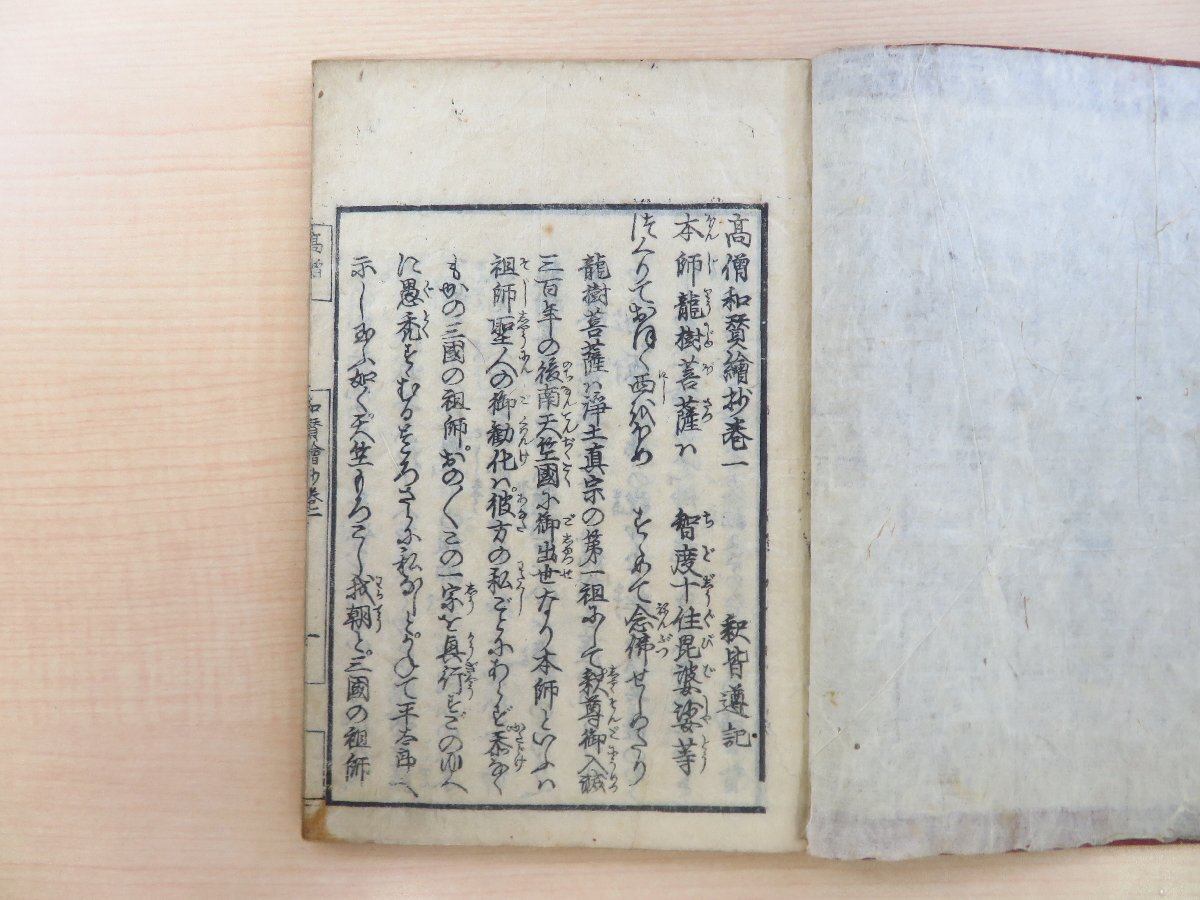 高僧和賛繪抄巻一　釈皆遵記
本師龍樹菩薩ハ　智度十住毘婆娑等
つくりておほく西をほめ　すゝめて念佛せしめたり
龍樹菩薩ハ浄土真宗の第一祖にして釈尊御入滅
三百年の後南天竺國に御出世なり本師といふハ
祖師聖人の御勧化ハ彼方の私ごとにあらず忝なく
もかの三國の祖師おの〳〵この一宗を真行す
に愚禿すゝむるところさらに私なしとかねて平太郎へ
示し給ふ如く天竺もろこし我朝と三國の祖師
高僧
和賛繪抄巻一
一